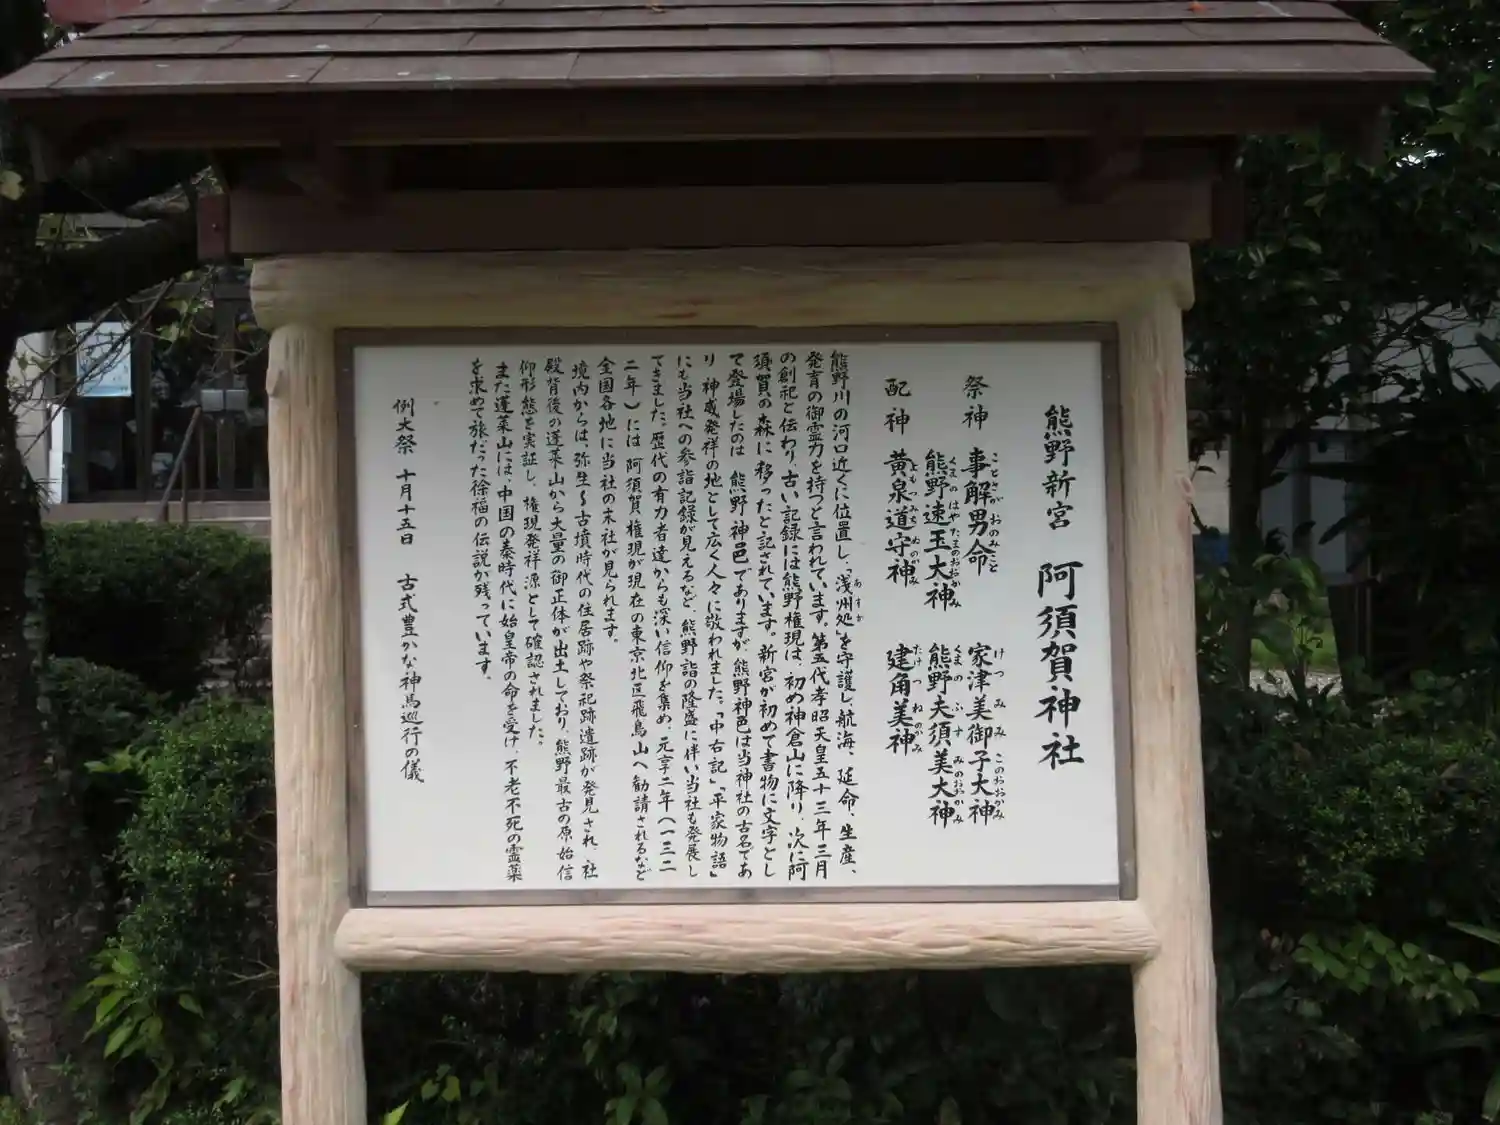 熊野新宮 阿須賀神社
祭神 事解男命 家津美御子大神
ことさかおのみこと けつみみこのおおかみ
熊野速玉大神 熊野夫須美大神
くまのはやたまのおおかみ くまのふすみのおおかみ
配神 黄泉道守神 建角美神
よもつみちもりのかみ たけつねのかみ
熊野川の河口近くに位置し、「浅州処」を守護し、航海、延命、生産、
あすか
発育の御霊力を持つと言われています。第五代孝昭天皇五十三年三月
の創祀と伝わり、古い記録には熊野権現は、初め神倉山に降り、次に阿
須賀の森に移ったと記されています。新宮が初めて書物に文字とし
て登場したのは 熊野神邑でありますが、熊野神邑は当神社の古名であ
り 神威発祥の地として広く人々に敬われました。「中右記」「平家物語」
にも当社への参詣記録が見えるなど、熊野詣の隆盛に伴い当社も発展し
てきました。歴代の有力者達からも深い信仰を集め、元享二年(一三二
二年)には 阿須賀権現が現在の東京北区飛鳥山へ勧請されるなど
全国各地に当社の末社が見られます。
境内からは、弥生〜古墳時代の住居跡や祭祀跡遺跡が発見され、社
殿背後の蓬莱山から大量の御正体が出土しており、熊野最古の原始信
仰形態を実証し、権現発祥源として確認されました。
また蓬莱山には、中国の秦時代に始皇帝の命を受け、不老不死の霊薬
を求めて旅だった徐福の伝説が残っています。
例大祭 十月十五日 古式豊かな神馬巡行の儀